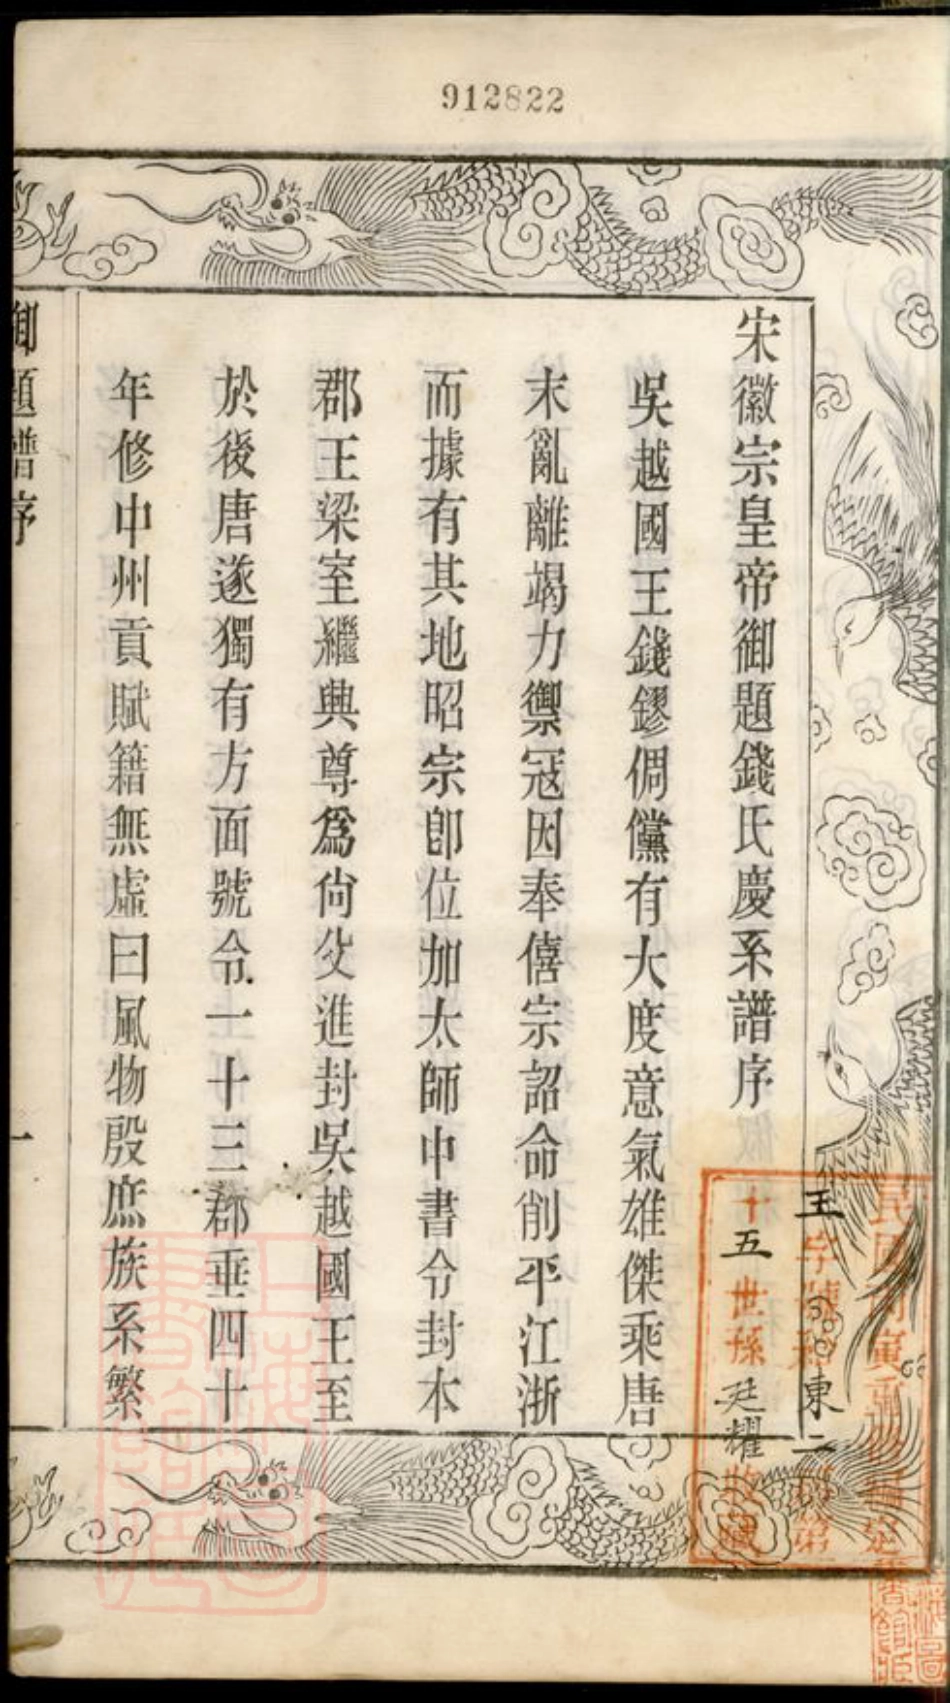 912822
宋徽宗皇帝御題錢氏慶系譜序
吳越國王錢鏐倜儻有大度意氣雄傑乘唐
末亂離竭力禦冦因奉僖宗詔命削平江浙
而據有其地昭宗卽位加太師中書令封本
郡王梁室繼興尊爲尙父進封吳越國王至
於後唐遂獨有方面號令一十三郡垂四十
年修中州貢賦籍無虛曰風物殷庶族系繁
御題譜序
一
民國
王字
東二
第
十五世孫廷耀收藏